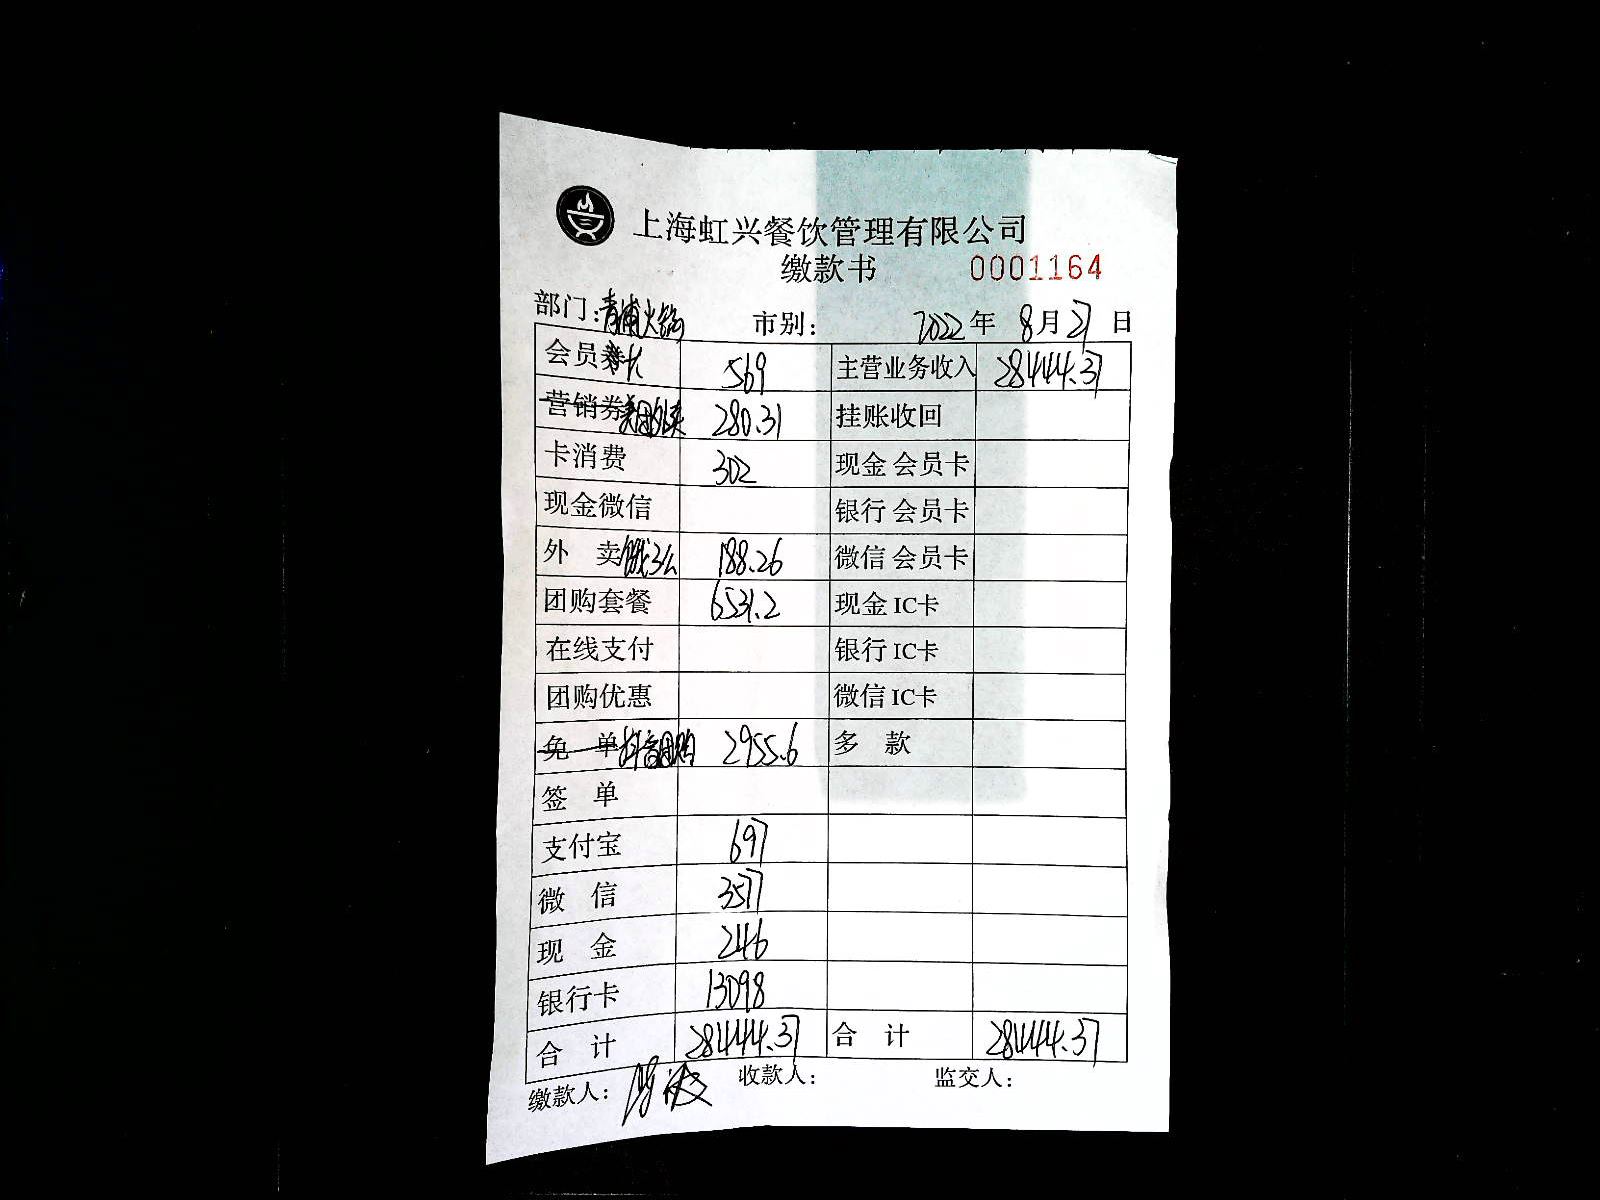 上海虹兴餐饮管理有限公司
缴款书 0001164
部门:青浦火锅 市别: 2022年 8月27日
会员 569 主营业务收入 28444.37
营销券美团外卖 280.31 挂账收回
卡消费 302 现金 会员卡
现金微信 银行 会员卡
外 卖饿了么 188.26 微信 会员卡
团购套餐 6531.2 现金 IC卡
在线支付 银行 IC卡
团购优惠 微信 IC卡
免 单抖音团购 2955.6 多 款
签 单
支付宝 697
微 信 3577
现 金 246
银行卡 13098
合 计 28444.37 合 计 28444.37
缴款人: 收款人: 监交人: